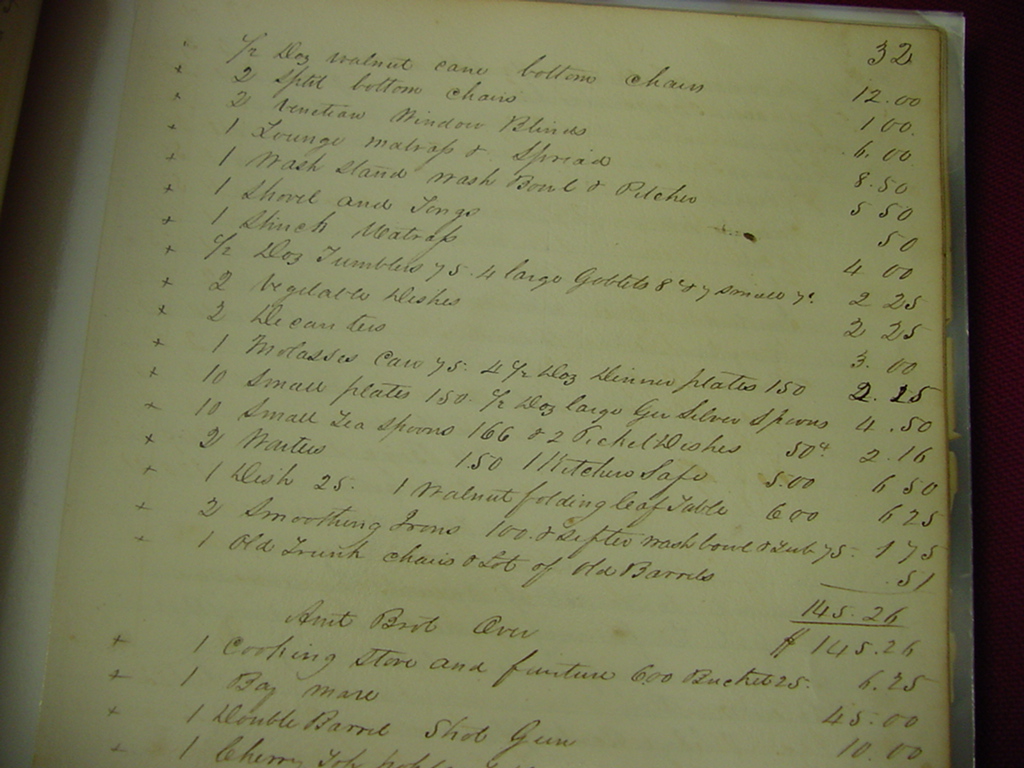 32
+ 1/2 Doz walnut cane bottom chairs 12.00
+ 2 Split bottom chairs 1 00.
+ 2 Venetian Window Blinds 6.00
+ 1 Lounge matrass & Spread 8.50
+ 1 Wash Stand wash Bowl & Pitcher 5 50
+ 1 Shovel and Tongs 50
+ 1 Matrass 4 00
+ 1/2 Doz Tumblers 75. 4 large Goblets 8 & 7 small 7 2 25
+ 2 Vegetable Dishes 2 25
+ 2 Decanters 3.00
+ 1 Molasses Can 75. 4 1/2 Doz Dinner plates 150 2.25
+ 10 Small plates 150. 1/2 Doz large Ger Silver Spoons 4.50
+ 10 Small Tea Spoons 166 & 2 Pickel Dishes 50 2.16
+ 2 Waiters 1.50 1 Kitchen Safe 5.00 6 50
+ 1 Dish 25. 1 Walnut folding leaf Table 600 6 25
+ 2 Smoothing Irons 100. & Sifter wash bowl & Tub 75. 1 75
+ 1 Old Trunk chairs & Lot of Old Barrels .51
145.26
Amt Brot Over $ 145.26
+ 1 Cooking Stove and funiture 600 Bucket 25. 6.25
+ 1 Bay mare 45.00
+ 1 Double Barrel Shot Gun 10.00
+ 1 Cherry